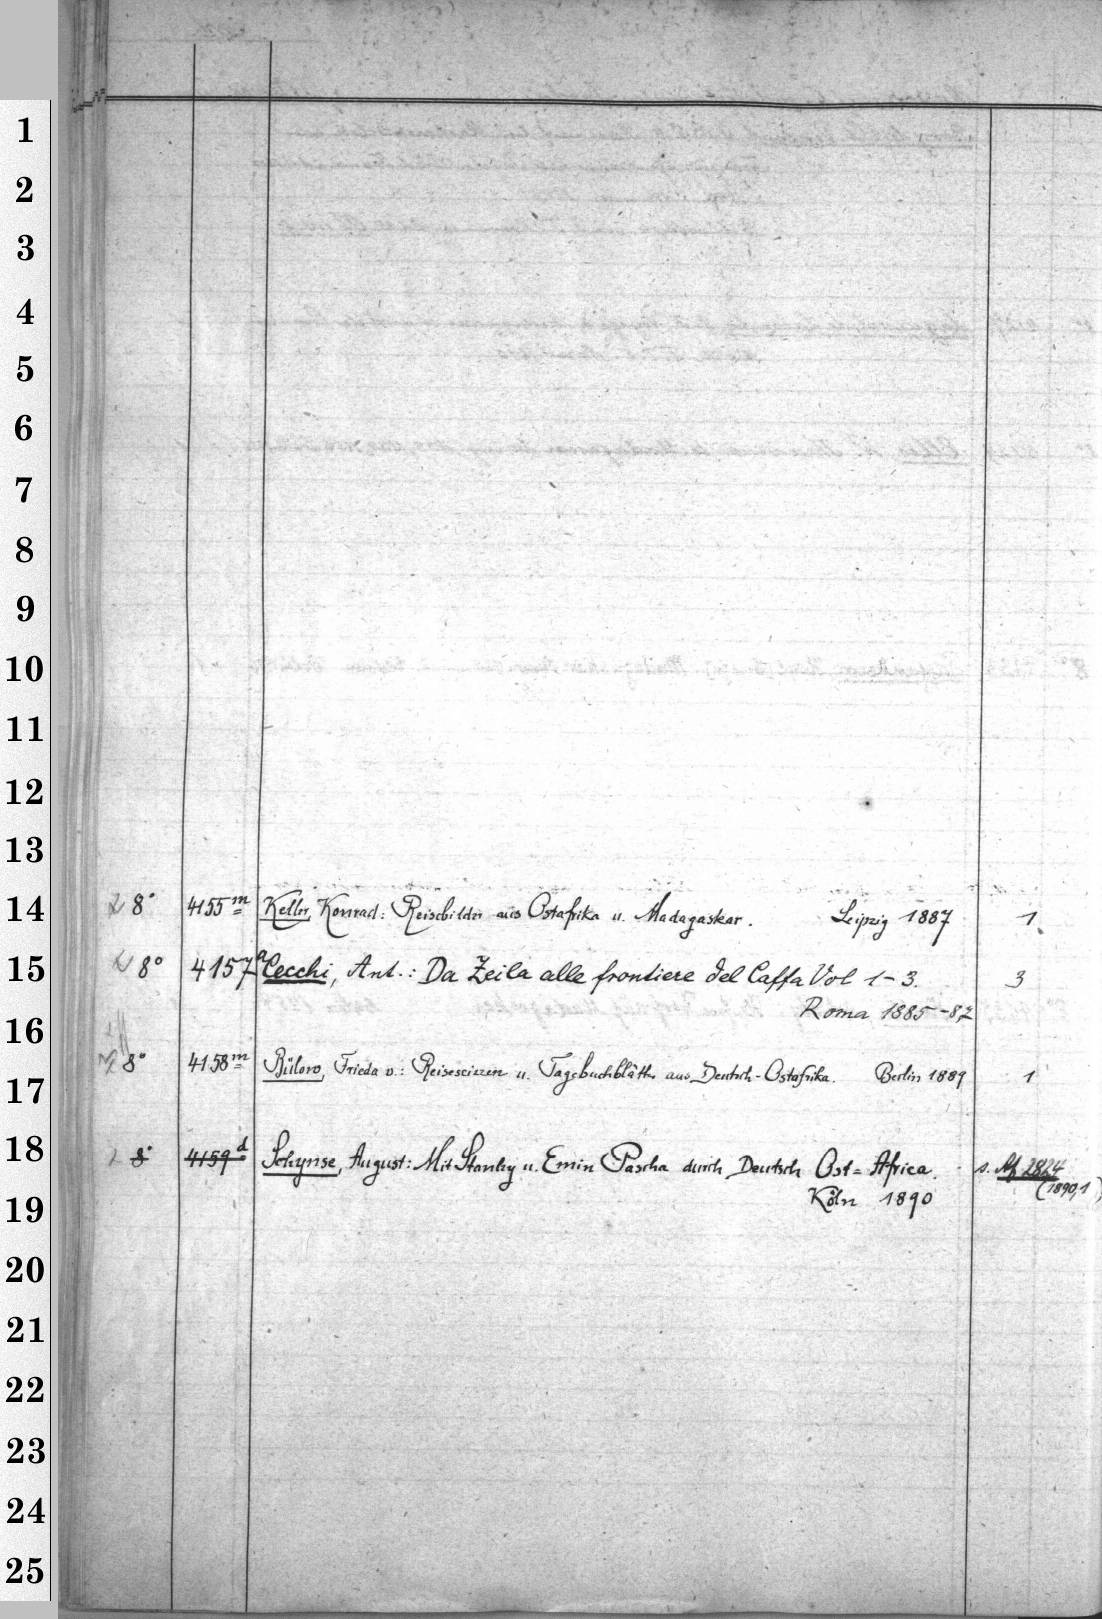 1
2
3
4
5
6
7
8
9
10
11
12
13
14 8° 4155m Keller, Konrad: Reisebilder aus Ostafrika u. Madagaskar. Leipzig 1887 1
15 8° 4157a Cecchi, Ant.: Da Zeila alle frontiere del Caffa Vol 1-3. 3
16 Roma 1885-87
17 8° 4158m Bülow, Frieda v.: Reisescizzen u. Tagebuchblätter aus Deutsch-Ostafrika. Berlin 1889 1
18 8° 4159d Schynse, August: Mit Stanley u. Emin Pascha durch Deutsch Ost=Africa. s. Af 2824
19 Köln 1890 (1890,1)
20
21
22
23
24
25